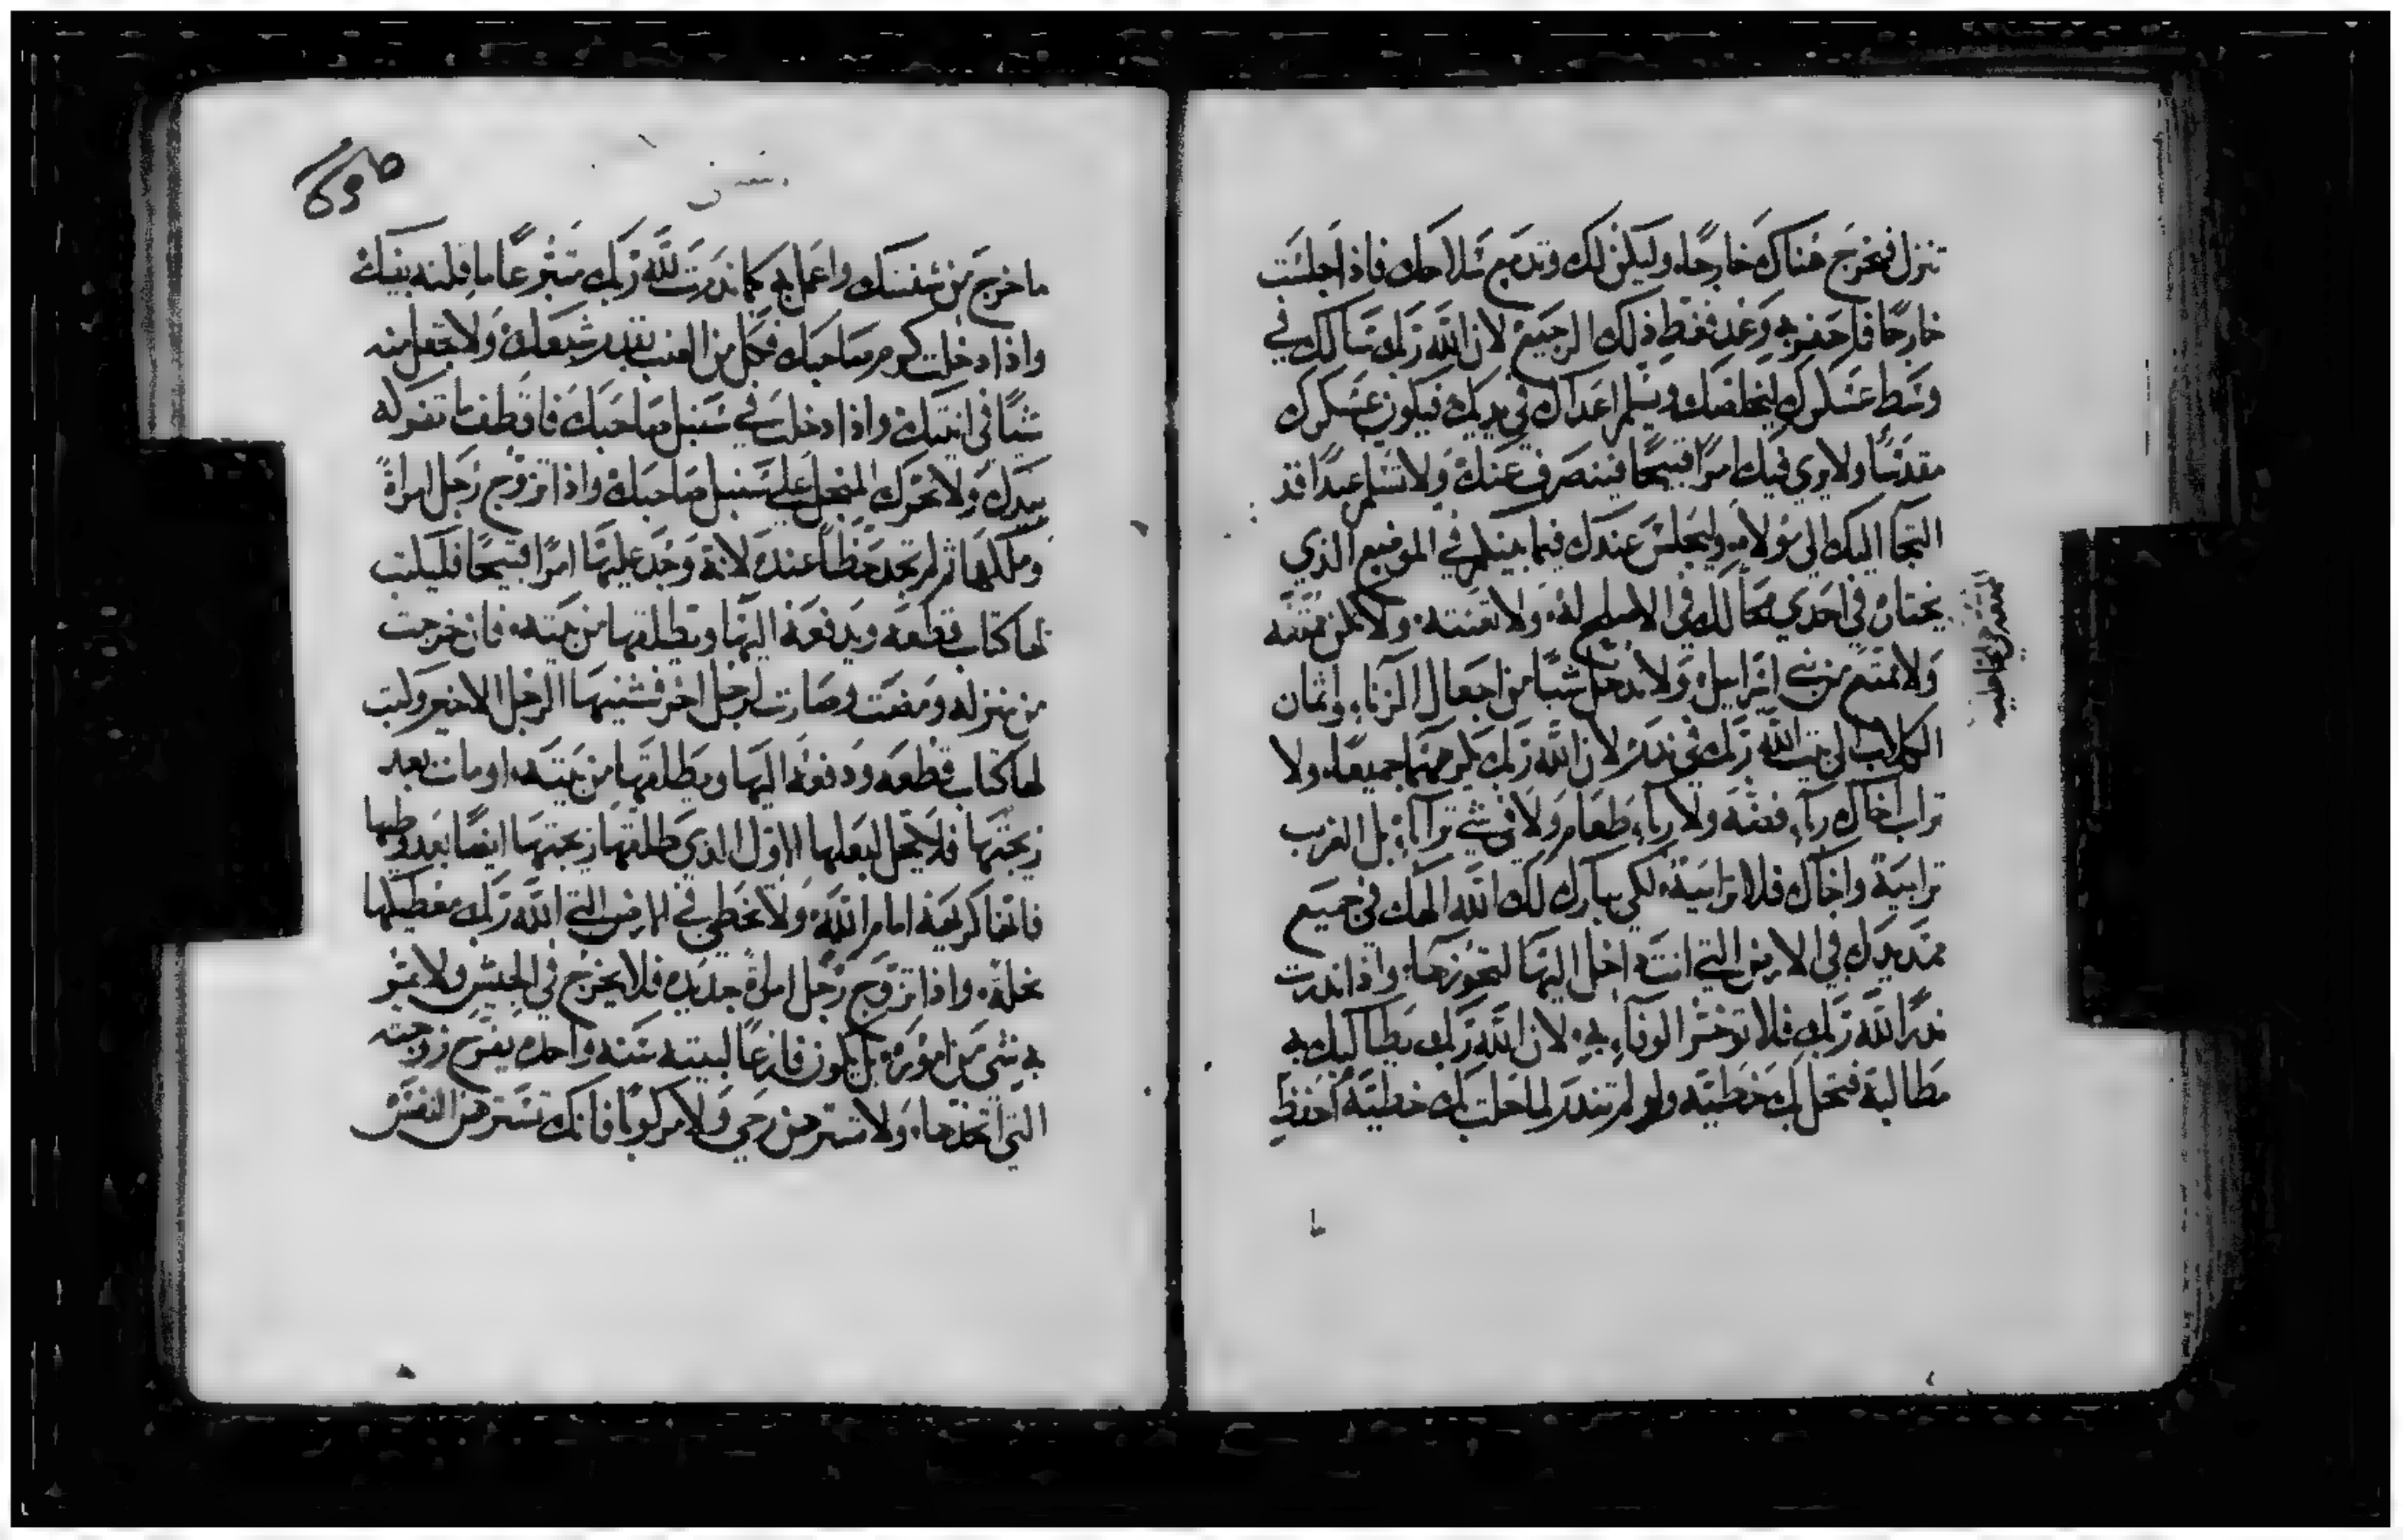 تنزل فتخرج هناك خارجا، وليكن لك وتد مع سلاحك فاذا جلست
خارجًا فاحفر به وعد فغط ذلك الرجيع لان الله ربك سالك في
وسط عسكرك ليخلصك ويسلم اعداك في يديك فيكون عسكرك
مقدسًا ولا يري فيك امرًا قبيحًا فينصرف عنك ولا تسلم عبدًا قد
التجا اليك الي مولاه وليجلس عندك فيما بينكم في الموضع الذي
يختار في احدي محالك في الاصلح له ولا تعنته ولا تكن
ولا متمتع من بني اسراييل ولا تدخل شيًا من اجعال الزناء واثمان
الكلاب الي بيت الله ربك في ندر لان الله ربك يكرههما جميعًا، ولا
تراب اخاك رباء فضه ولا رباء طعام ولا في شي تراباه بل الغريب
ترابيه واخاك فلا ترابيه لكي يبارك لك الله الهك في جميع
ممتد يدك في الارض التي انت داخل اليها لتحوزها، واذا ندرت
ندرًا لله ربك فلا توخر الوفاء به لان الله ربك يطالبك به
مطالبة فتحل بك خطيه ولو لم تندر لما حلت بك خطية احفظ
ما خرج من شفتيك واعمل به كما ندرت لله ربك تبرعا ما قلته بفيك
واذا دخلت كرم صاحبك فكل من العنب بقدر شبعك ولا تجعل منه
شيًا في انيتك واذا دخلت في سنبل صاحبك فاقطف ما تفركه
بيدك ولا تحرك المنجل علي سنبل صاحبك واذا تزوج رجل امراة
وملكها ثم لم تجد حظًا عنده لانه وجد عليها امرًا قبيحًا فليكتب
لها كتاب قطعه ويدفعه اليها ويطلقها من بيته، فان خرجت
من منزله ومضت وصارت لرجل اخر فشنيها الرجل الاخير وكتب
لها كتاب قطعه ودفعه اليها ويطلقها من بيته، او مات بعد
زيجتها فلا يحل لبعلها الاول الذي طلقها زيجتها ايضًا بعد وطيها
فانها كريهة امام الله ولا تخطي في الارض التي الله ربك معطيكها
نحلة، واذا تزوج رجل امراة جديده فلا يخرج في الجيش ولا يمر
به شي من اموره بل يكون فارغًا لبيته سنه واحده يفرح زوجته
التي اتخذها، ولا تسترهن رحي ولا مركوبًا فانك تسترهن النفس